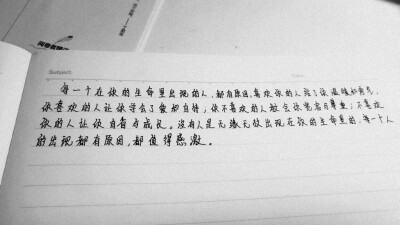 Subject:
每一个在你的生命里出现的人，都有原因。喜欢你的人给了你温暖和勇气，
你喜欢的人让你学会了爱和自持，你不喜欢的人教会你宽容与尊重，不喜欢
你的人让你自省与成长。没有人是无缘无故出现在你的生命里的，每一个人
的出现都有原因，都值得感激。